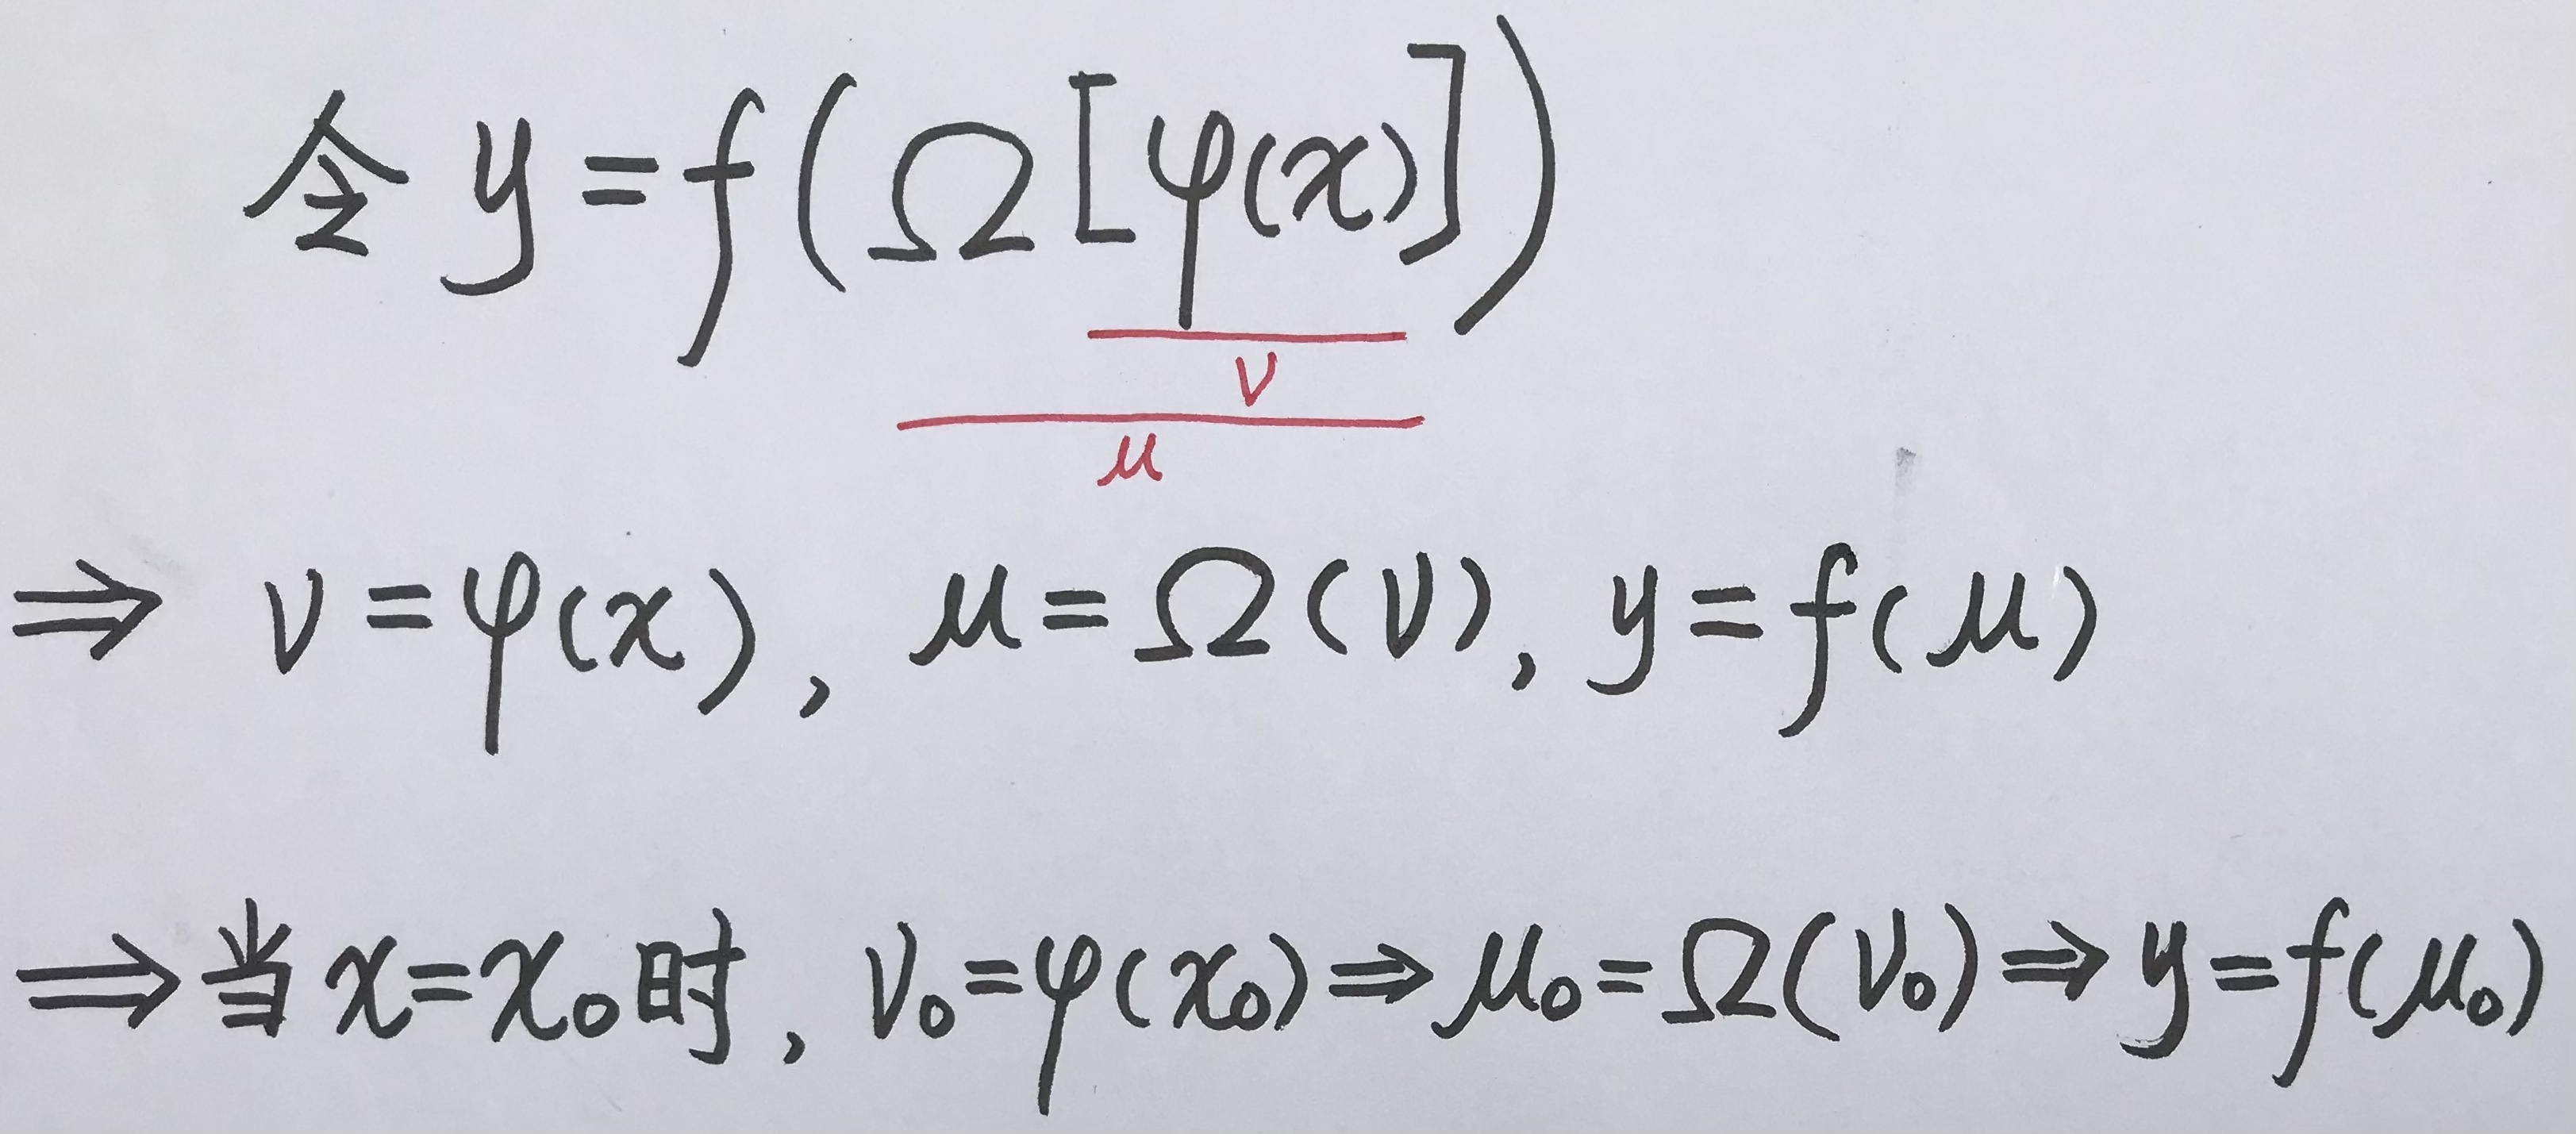 令 y = f(Ω[φ(x)])
ν
μ
⇒ ν = φ(x), μ = Ω(ν), y = f(μ)
⇒ 当 x = x₀ 时, ν₀ = φ(x₀) ⇒ μ₀ = Ω(ν₀) ⇒ y = f(μ₀)